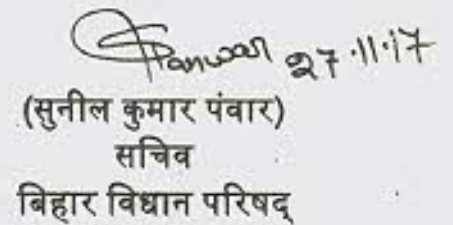 Panwar 27.11.17
(सुनील कुमार पंवार)
सचिव
बिहार विधान परिषद्